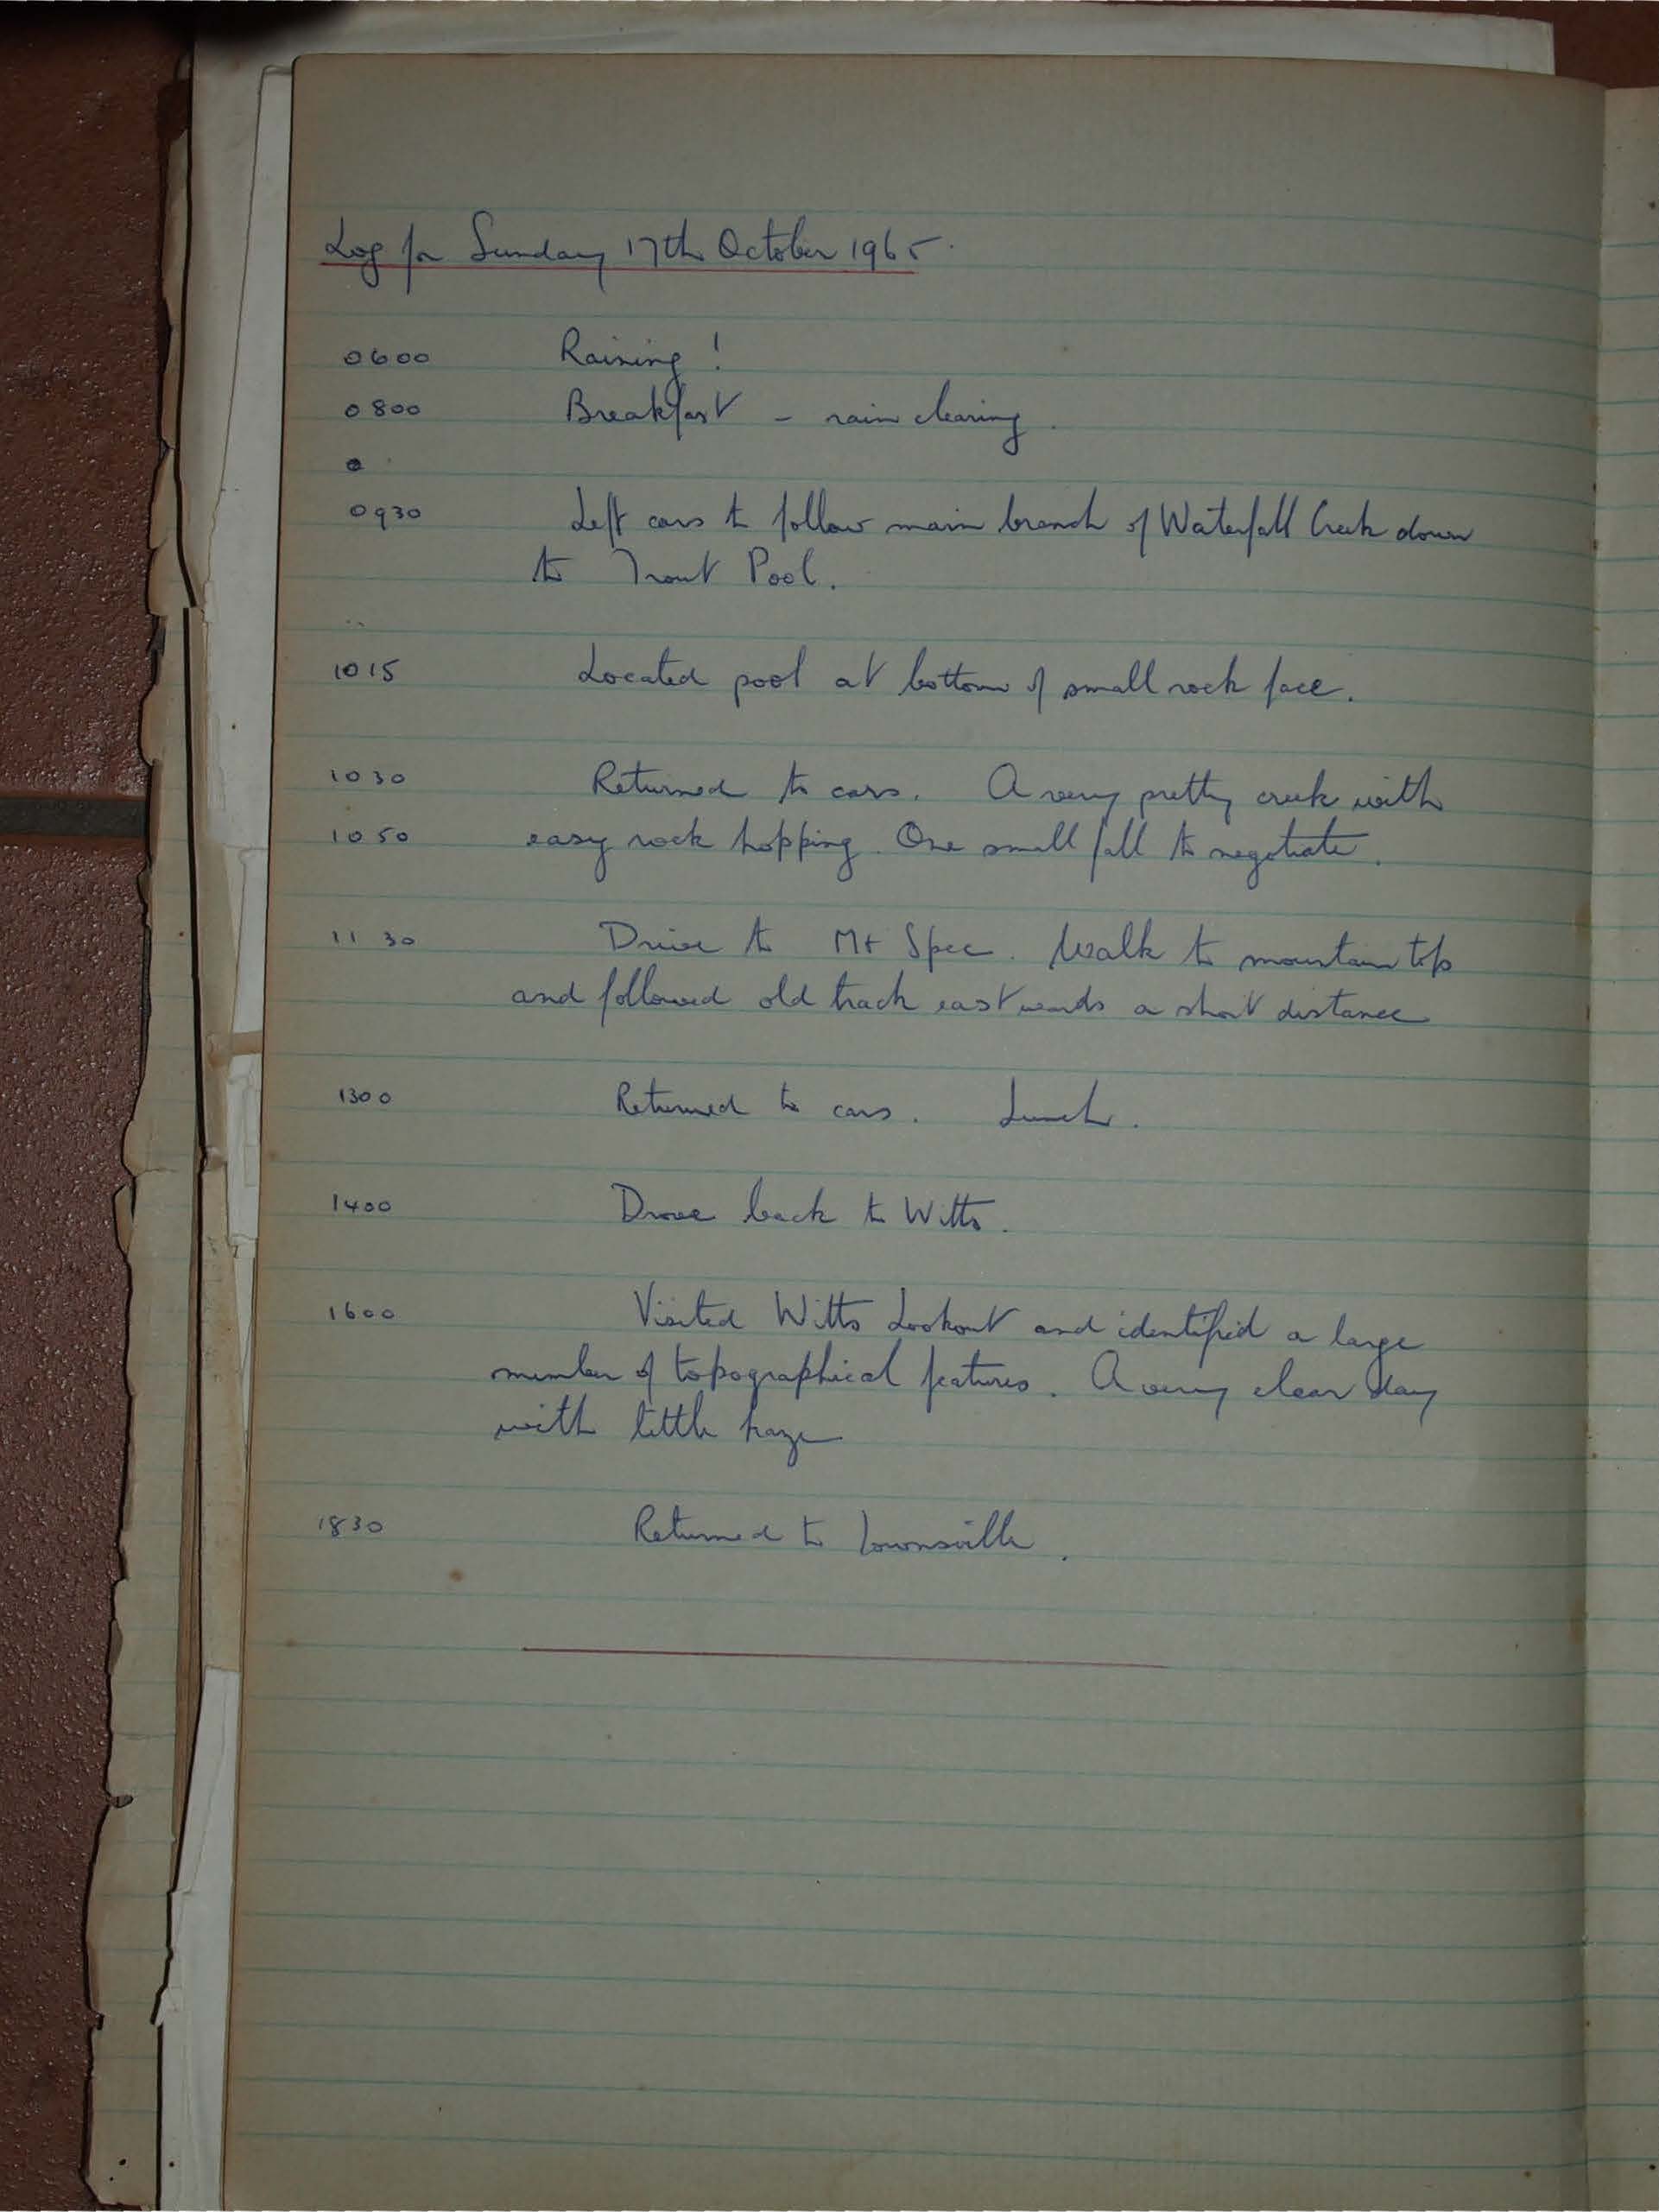 Log for Sunday 17th October 1965.
0600 Raining!
0800 Breakfast - rain clearing.
0930 Left cars to follow main branch of Waterfall Creek down
to Trout Pool.
1015 Located pool at bottom of small rock face.
1030 Returned to cars. A very pretty creek with
1050 easy rock hopping. One small fall to negotiate.
1130 Drive to Mt Spec. Walk to mountain top
and followed old track eastwards a short distance
1300 Returned to cars. Lunch.
1400 Drove back to Witts.
1600 Visited Witts Lookout and identified a large
number of topographical features. A very clear day
with little haze
1830 Returned to Townsville.